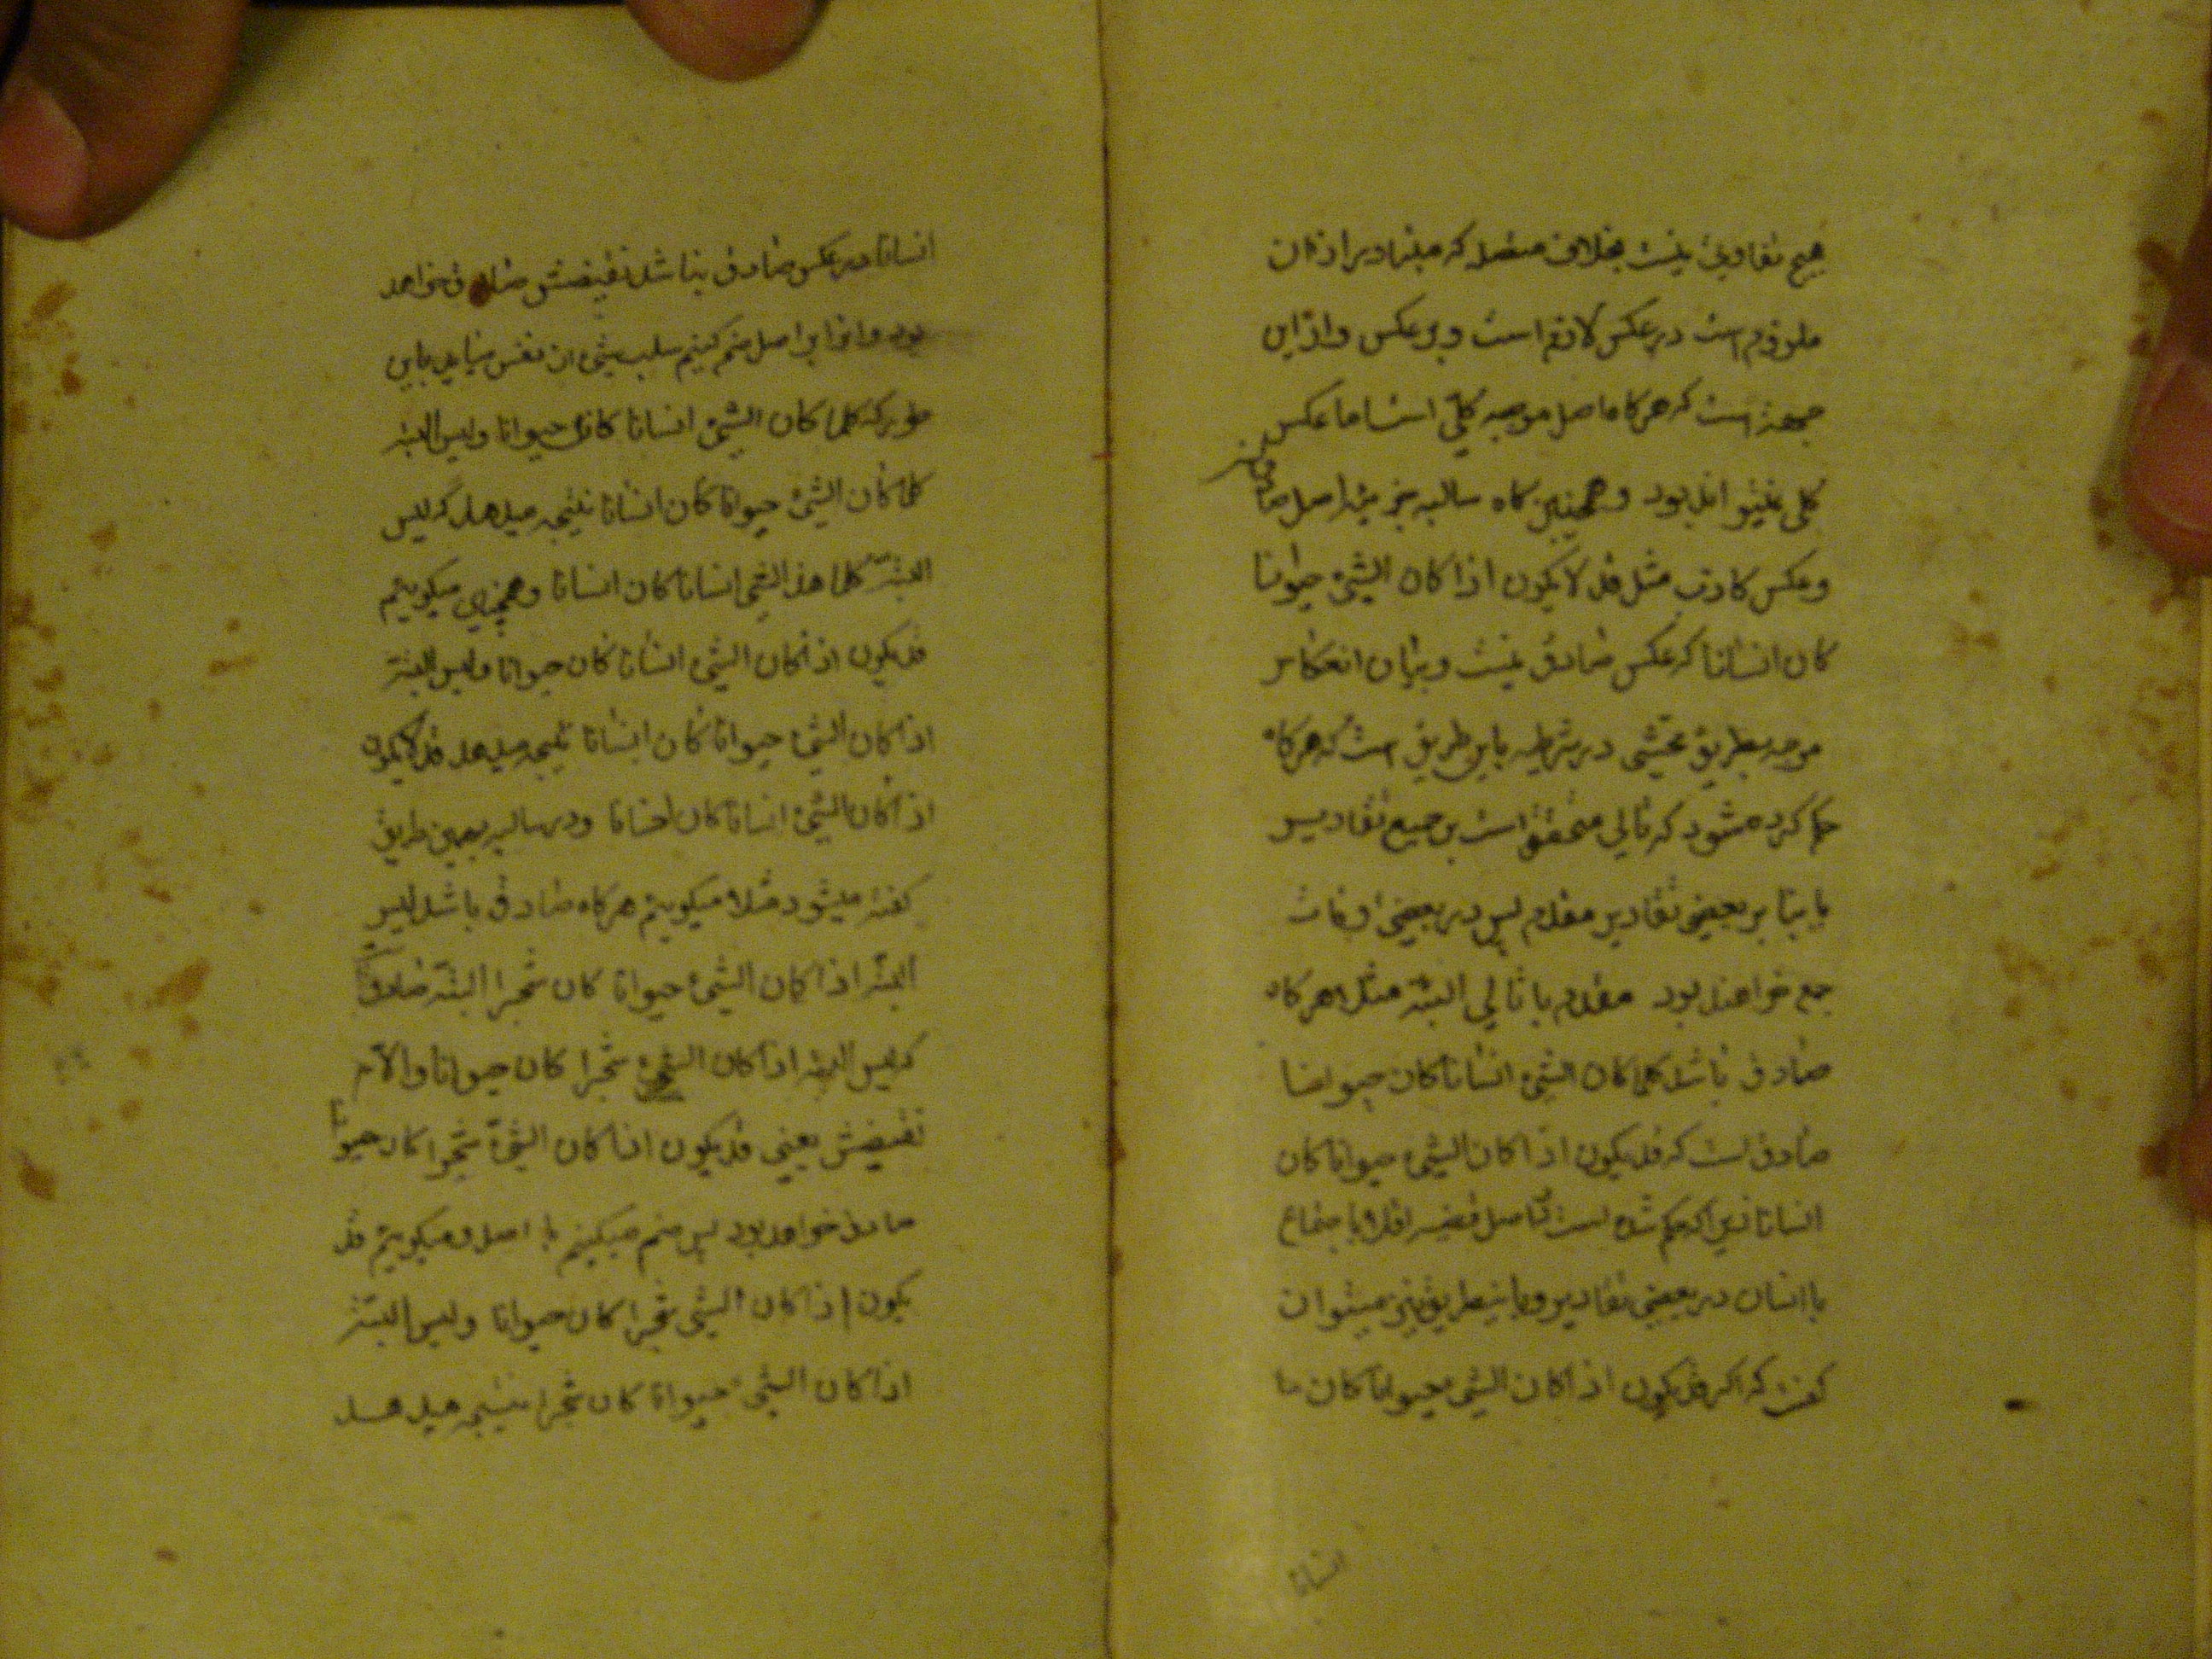 هیچ تفاوتی نیست بخلاف متصله که متبادر از ان
ملزوم است در عکس لازم است و بر عکس و از این
جهة است که هر کاه اصل موجبه کلی است اما عکس
کلی نمیتواند بود و همچنین کاه سالبه جزئیه اصل صادقست
و عکس کاذب مثل قد لا یکون اذا کان الشیء حیوانا
کان انسانا که عکس صادق نیست و بیان انعکاس
موجبه بطریق در شرطیه باین طریق است که هر کاه
حکم کرده شود که تالی متحقق است بر جمیع تقادیر
یا بنا بر بعضی تقادیر مقدم پس در بعضی اوقات
جمع خواهند بود مقدم با تالی البته مثلا هر کاه
صادق باشد کلما کان الشیء انسانا کان حیوانا
صادق است که قد یکون اذا کان الشیء حیوانا کان
انسانا زیرا که حکم شده است در اصل قضیه باجتماع
با انسان در بعضی تقادیر و باینطریق نیز میتوان
کفت که اکر قد یکون اذا کان الشیء حیوانا کان
انسانا
انسانا در عکس صادق نباشد نقیضش صادق خواهد
بود و انرا با اصل ضم کنیم سلب شیء از نفس میاید باین
طور که کلما کان الشیء انسانا کان حیوانا و لیس البته
کلما کان الشیء حیوانا کان انسانا نتیجه میدهد که لیس
البته کلما هذا الشیء انسانا کان انسانا و همچنین میکوییم
قد یکون اذا کان الشیء انسانا کان حیوانا و لیس البته
اذا کان الشیء حیوانا کان انسانا نتیجه میدهد قد لا یکون
اذا کان الشیء انسانا کان انسانا و در سالبه بهمین طریق
کفته میشود مثلا میکوییم هر کاه صادق باشد لیس
البته اذا کان الشیء حیوانا کان شجرا البته صادق
که لیس البته اذا کان الشیء شجرا کان حیوانا و الا
نقیضش یعنی قد یکون اذا کان الشیء شجرا کان حیوانا
صادق خواهد بود پس ضم میکنیم با اصل و میکوییم قد
یکون اذا کان الشیء شجرا کان حیوانا و لیس البته
اذا کان الشیء حیوانا کان شجرا نتیجه میدهد